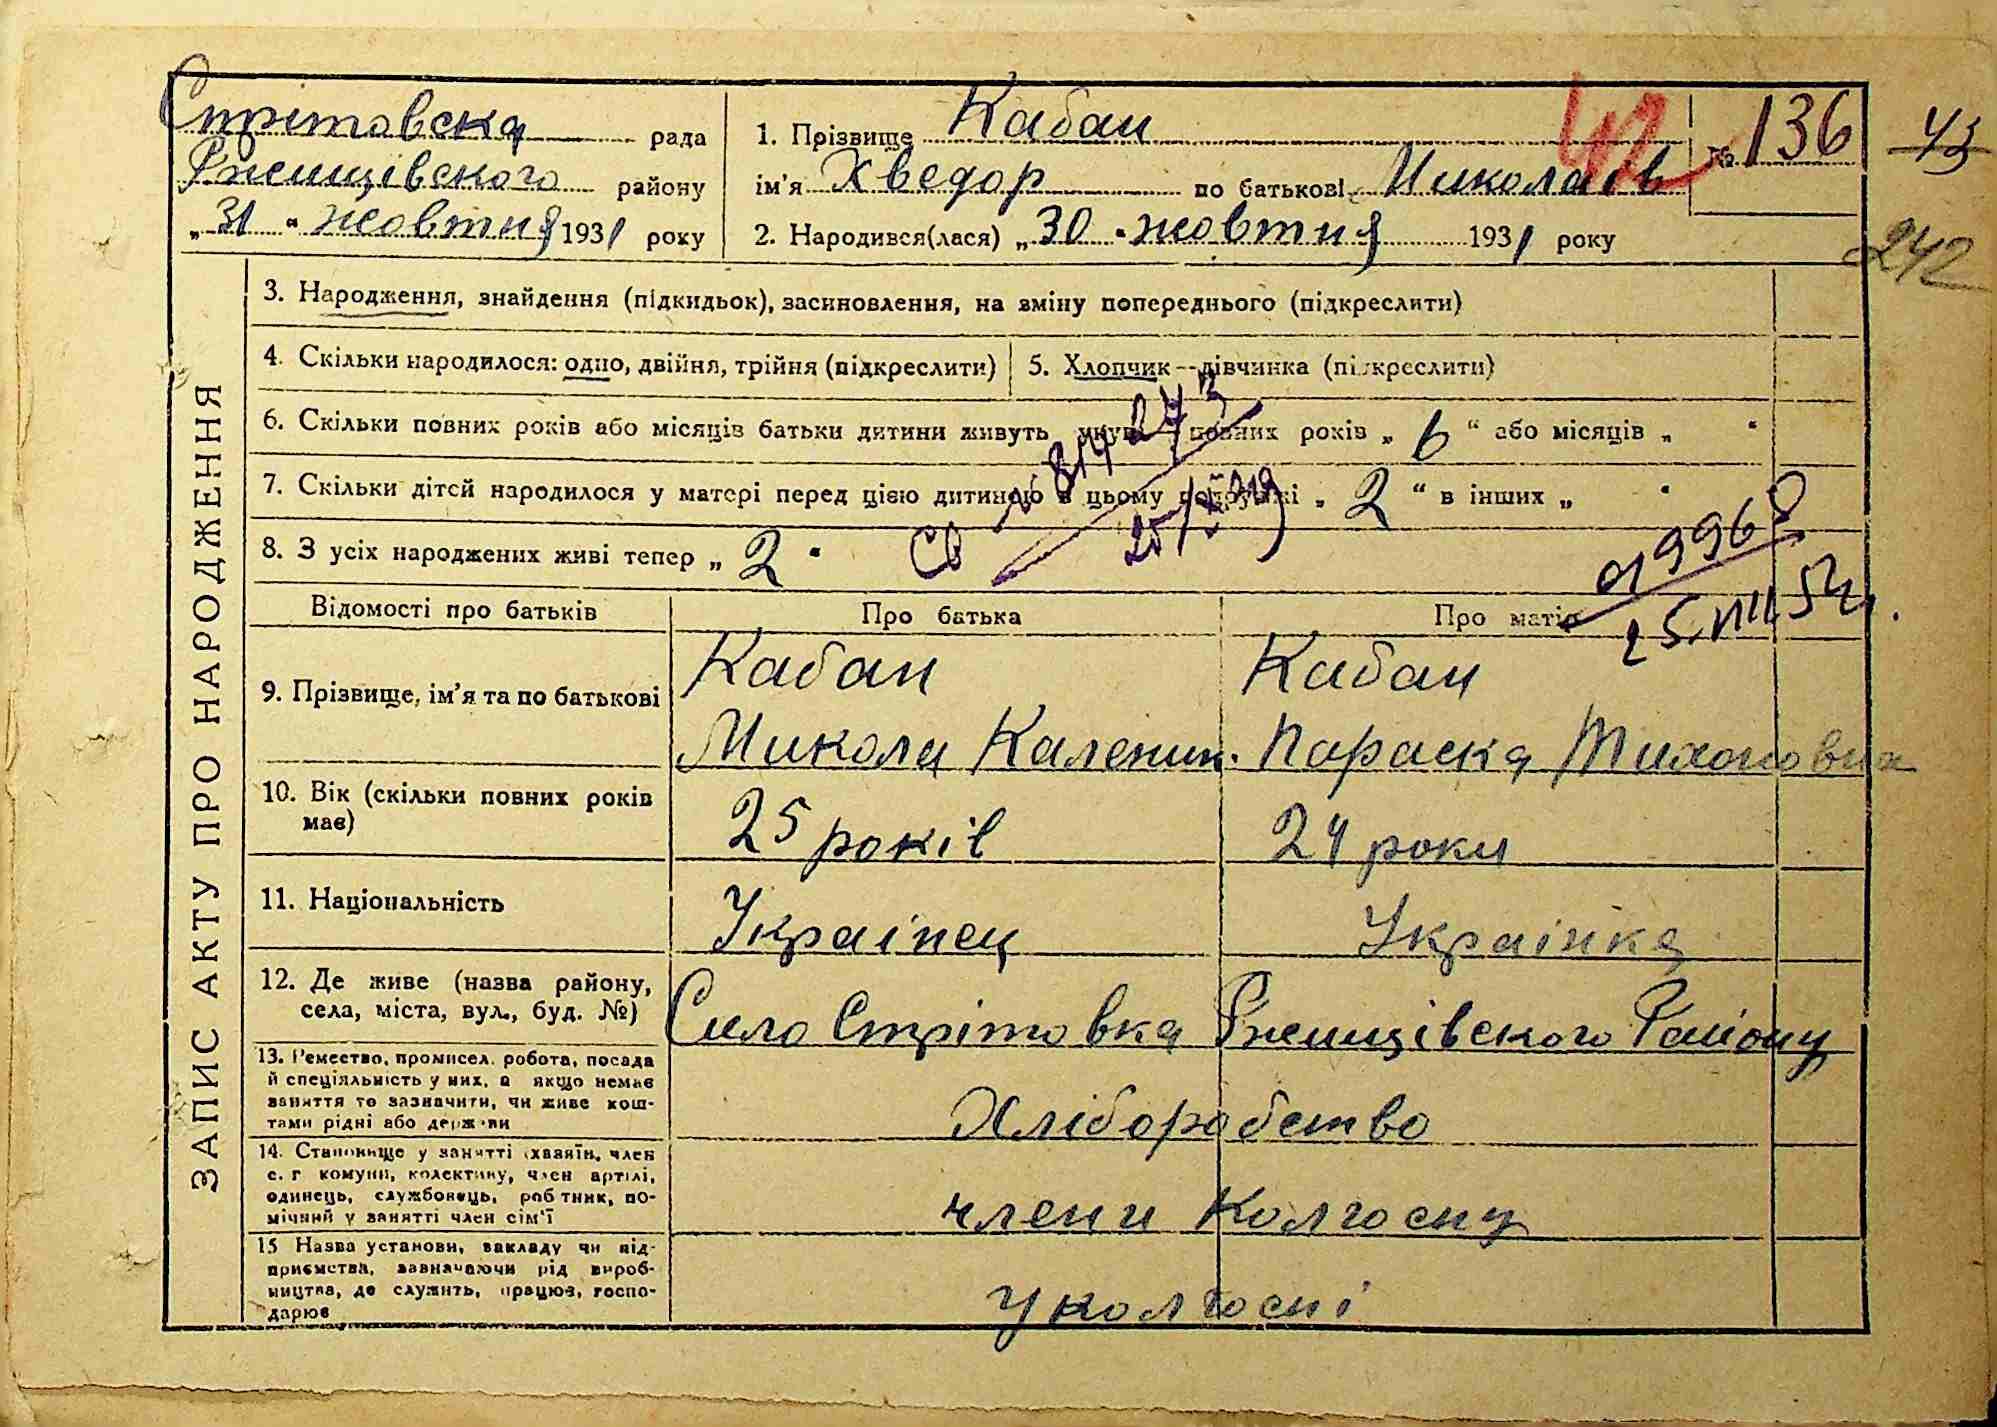 Стрітовска рада
Ржищівского району
„ 31 “ жовтня 1931 року
1. Прізвище Кабан
ім’я Хведор по батькові Миколаів
2. Народився(лася) „ 30 “ жовтня 1931 року
№ 136
42
43
242
ЗАПИС АКТУ ПРО НАРОДЖЕННЯ
3. Народження, знайдення (підкидьок), засиновлення, на зміну попереднього (підкреслити)
4. Скільки народилося: одно, двійня, трійня (підкреслити)
5. Хлопчик—дівчинка (підкреслити)
6. Скільки повних років або місяців батьки дитини живуть вкупі повних років „ 6 “ або місяців „ “
7. Скільки дітей народилося у матері перед цією дитиною в цьому подружжі „ 2 “ в інших „ “
8. З усіх народжених живі тепер „ 2 “
Св
25. VIII 54.
Відомості про батьків
Про батька
Про матір
9. Прізвище, ім’я та по батькові
Кабан
Микола Каленик.
Кабан
Параска Тихоновна
10. Вік (скільки повних років
має)
25 років
24 роки
11. Національність
Украінец
Украінка
12. Де живе (назва району,
села, міста, вул., буд. №)
Село Стрітовка Ржищівского Району
13. Ремество, промисел, робота, посада
й спеціяльність у них, а якщо немає
заняття то зазначити, чи живе кош-
тами рідні або держави
Хліборобство
14. Становище у занятті (хазяїн, член
с. г комуни, колективу, член артілі,
одинець, службовець, робітник, по-
мічний у занятті член сім’ї
члени Колгоспу
15 Назва установи, закладу чи під-
приємства, зазначаючи рід вироб-
ництва, де служить, працює, госпо-
дарює
у колгоспі